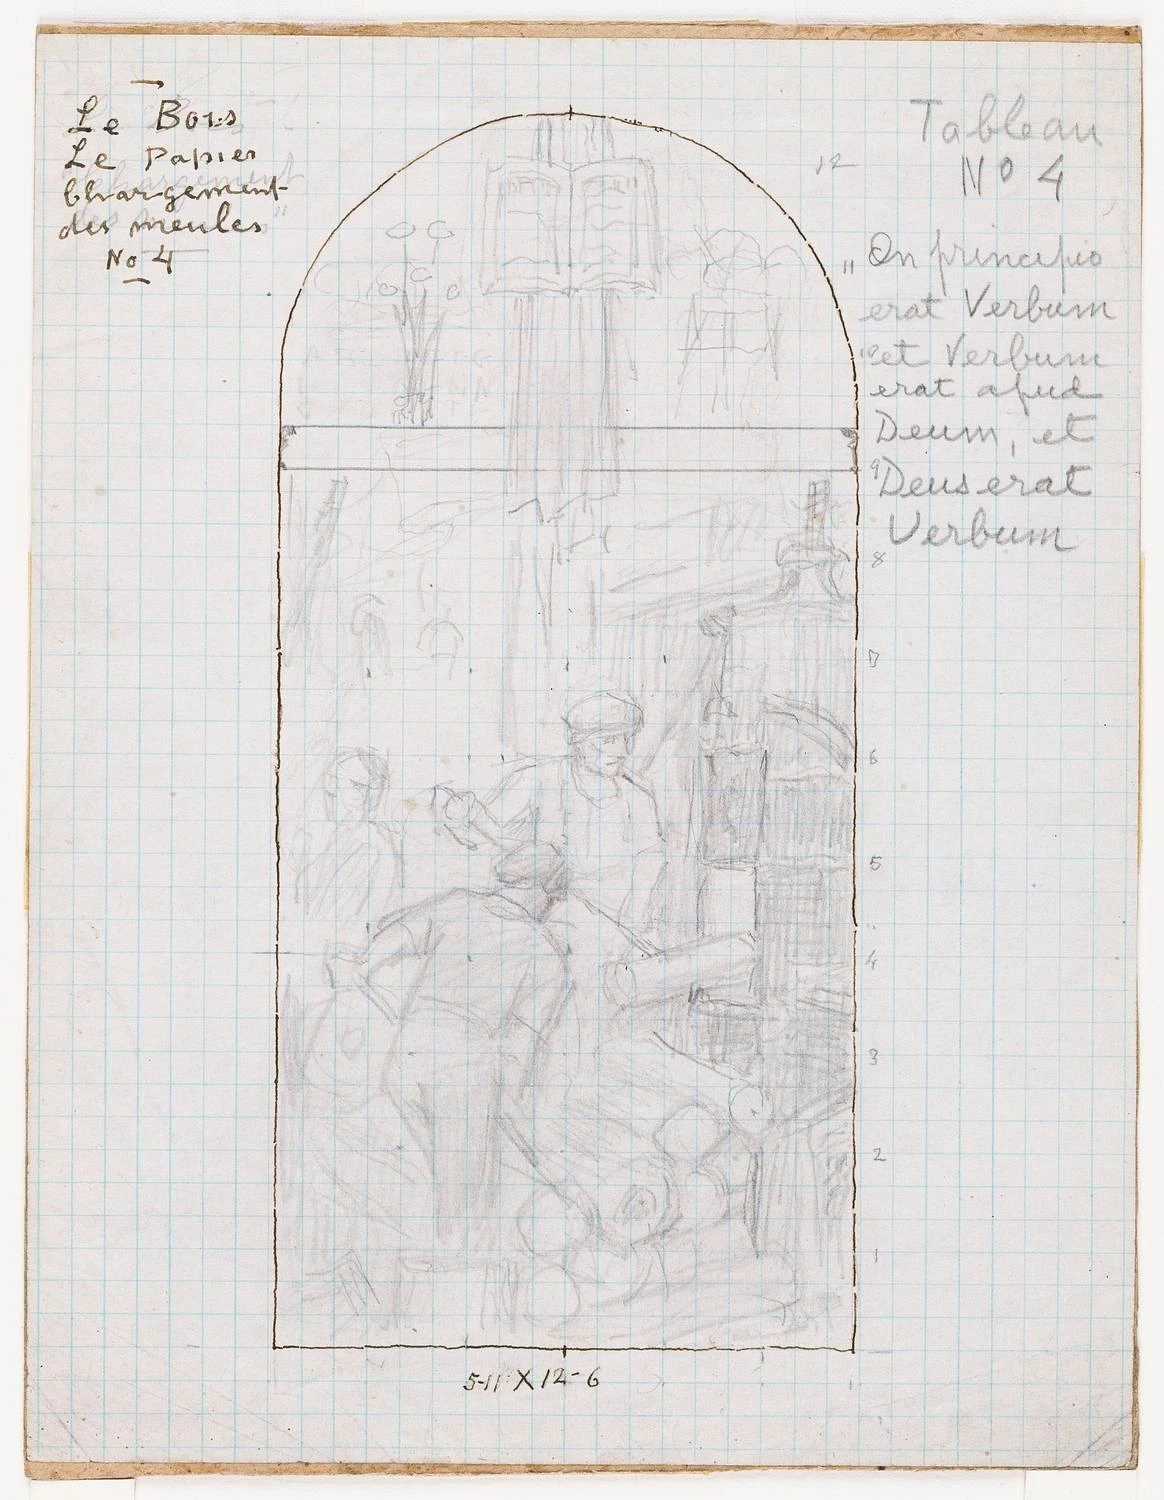 Le Bois
Le Papier
Chargement
des meules
No 4
Tableau
No 4
12
"In principio
erat Verbum
"et Verbum
erat apud
Deum, et
Deus erat
Verbum
9
8
7
6
5
4
3
2
1
5-11 X 12-6